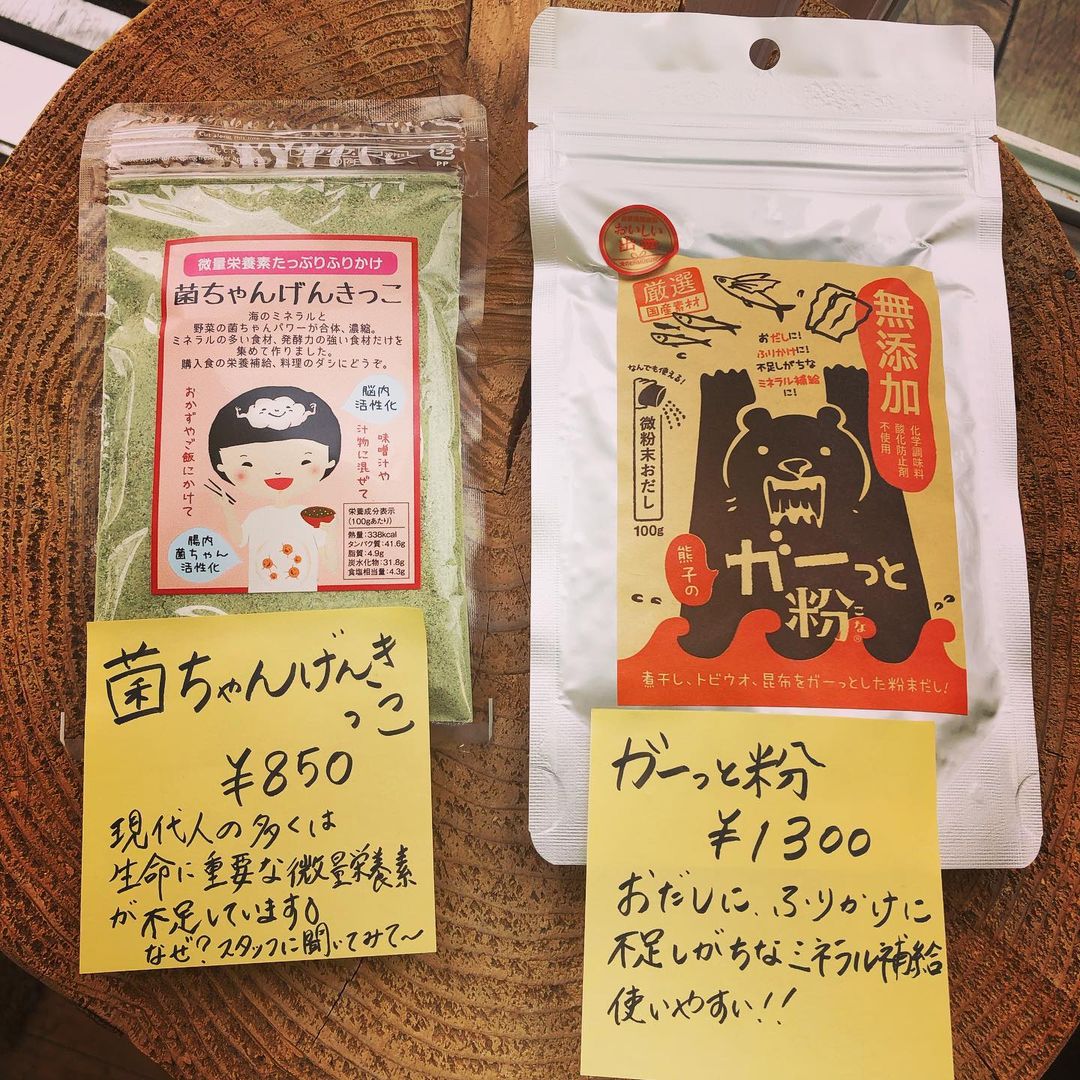 微量栄養素たっぷりふりかけ
菌ちゃんげんきっこ
海のミネラルと
野菜の菌ちゃんパワーが合体、濃縮。
ミネラルの多い食材、発酵力の強い食材だけを
集めて作りました。
購入食の栄養補給、料理のダシにどうぞ。
脳内
活性化
味噌汁や
汁物に混ぜて
おかずやご飯にかけて
腸内
菌ちゃん
活性化
栄養成分表示
(100gあたり)
熱量:338kcal
タンパク質:41.6g
脂質:4.9g
炭水化物:31.8g
食塩相当量:4.3g
PP
菌ちゃんげんき
っこ
¥850
現代人の多くは
生命に重要な微量栄養素
が不足しています。
なぜ?スタッフに聞いてみて〜
おいしい
出雲
厳選
国産素材
無添加
化学調味料
酸化防止剤
不使用
おだしに!
ふりかけに!
不足しがちな
ミネラル補給
に!
なんでも使える!
微粉末おだし
100g
熊子の
ガーっと
粉
こな®
煮干し、トビウオ、昆布をガーっとした粉末だし!
ガーっと粉
¥1300
おだしに、ふりかけに
不足しがちなミネラル補給
使いやすい!!